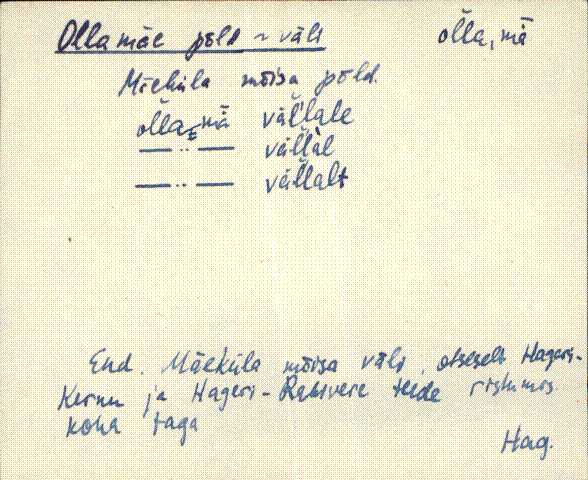 Ollamäe põld ~ väli õ̭lla, mä
Mäeküla mõisa põld.
õ̭lla, mä väl̆lale
— .. — väl̆lal
— .. — väl̆lalt
End. Mäeküla mõisa väli, otseselt Hageri-
Kernu ja Hageri-Rabivere teede ristumis
koha taga
Hag.